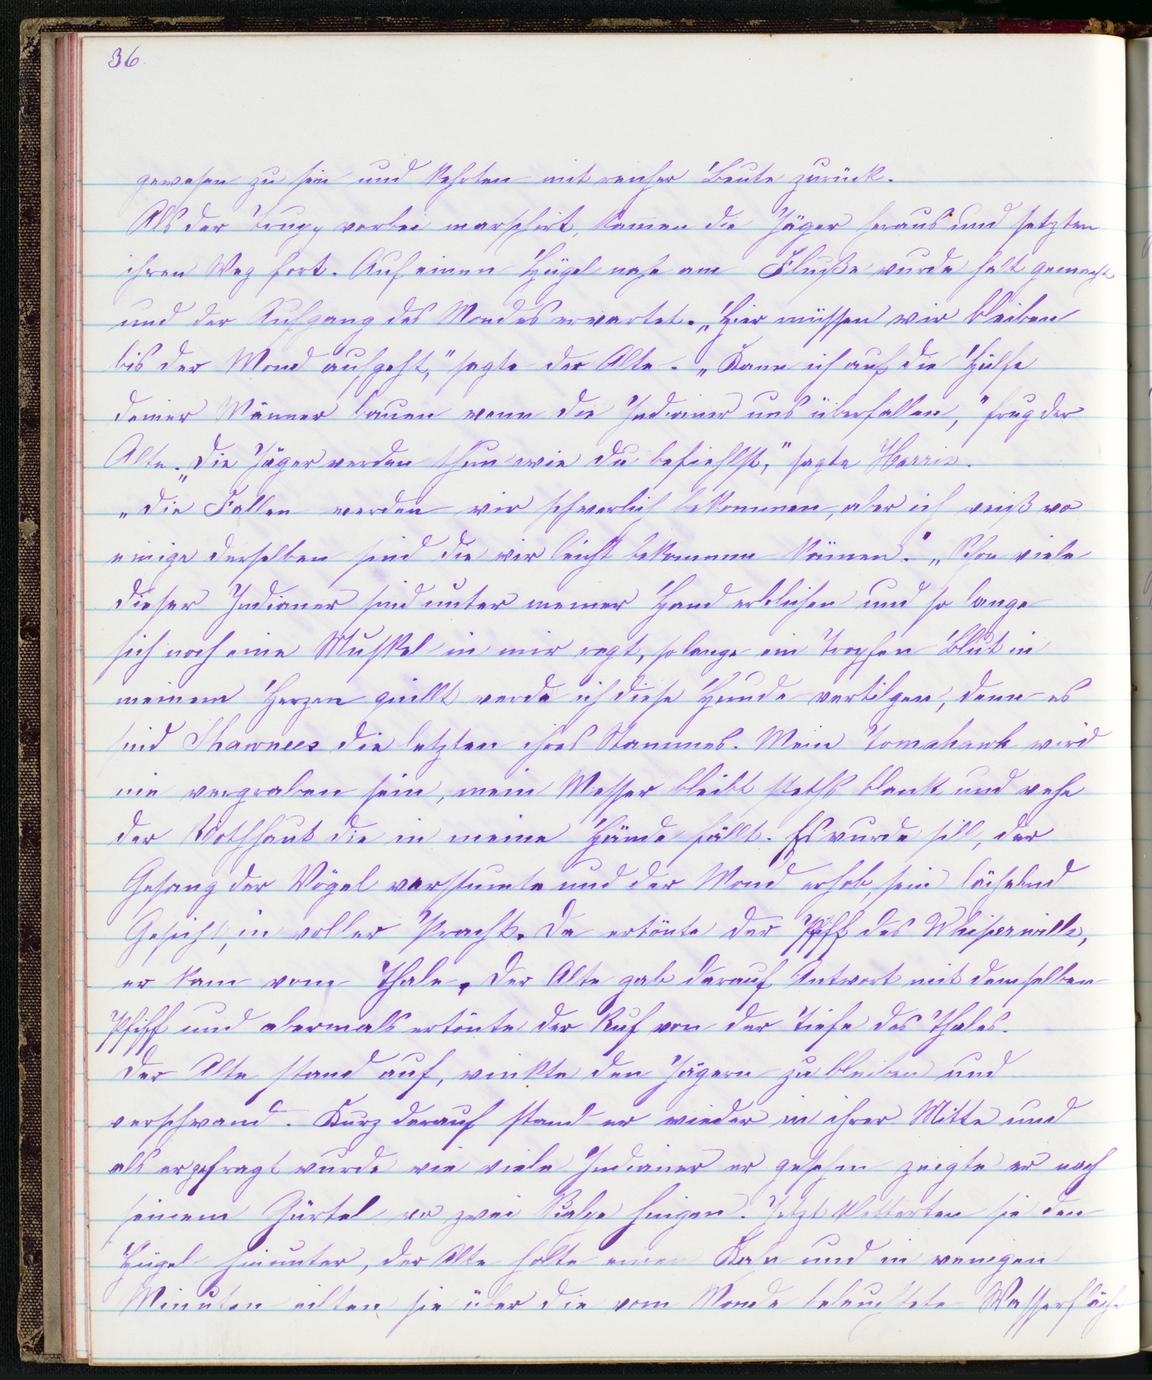 36.
gewesen zu sein und kehrten mit reicher Beute zurück.
Als der Trupp vorbei marschirt, kamen die Jäger heraus und setzten
ihren Weg fort. Auf einen Hügel nahe am Fluße wurde halt gemacht
und der Aufgang des Mondes erwartet. „Hier müssen wir bleiben
bis der Mond aufgeht," sagte der Alte. „Kann ich auf die Hülfe
deiner Männer bauen wenn die Indianer uns überfallen," frug der
Alte. „Die Jäger werden thun wie du befiehlst," sagte Harris.
„Die Fallen werden wir schwerlich bekommen, aber ich weiß wo
einige derselben sind die wir leicht bekommen können." „Schon viele
dieser Indianer sind unter meiner Hand erblichen und so lange
sich noch eine Muskel in mir regt, solange ein Tropfen Blut in
meinem Herzen quillt werde ich diese Hunde vertilgen, denn es
sind Shawnees die letzten ihres Stammes. Mein Tomahawk wird
nie vergraben sein, mein Messer bleibt stehts blank und wehe
der Rothhaut die in meine Hände fällt. Es wurde still, der
Gesang der Vögel verstumte und der Mond erhob sein lächelnd
Gesicht, in voller Pracht. Da ertönte der Pfiff des Whiperwills,
er kam vom Thale. Der Alte gab darauf Antwort mit demselben
Pfiff und abermals ertönte der Ruf von der Tiefe des Thales.
Der Alte stand auf, winkte den Jägern zu bleiben und
verschwand. Kurz darauf stand er wieder in ihrer Mitte und
als er gefragt wurde wie viele Indianer er gesehen zeigte er nach
seinem Gürtel wo zwei Skalpe hingen. Jetzt kletterten sie den
Hügel hinunter, der Alte holte einen Kahn und in wenigen
Minuten eilten sie über die vom Monde beleuchtete Wasserfläche